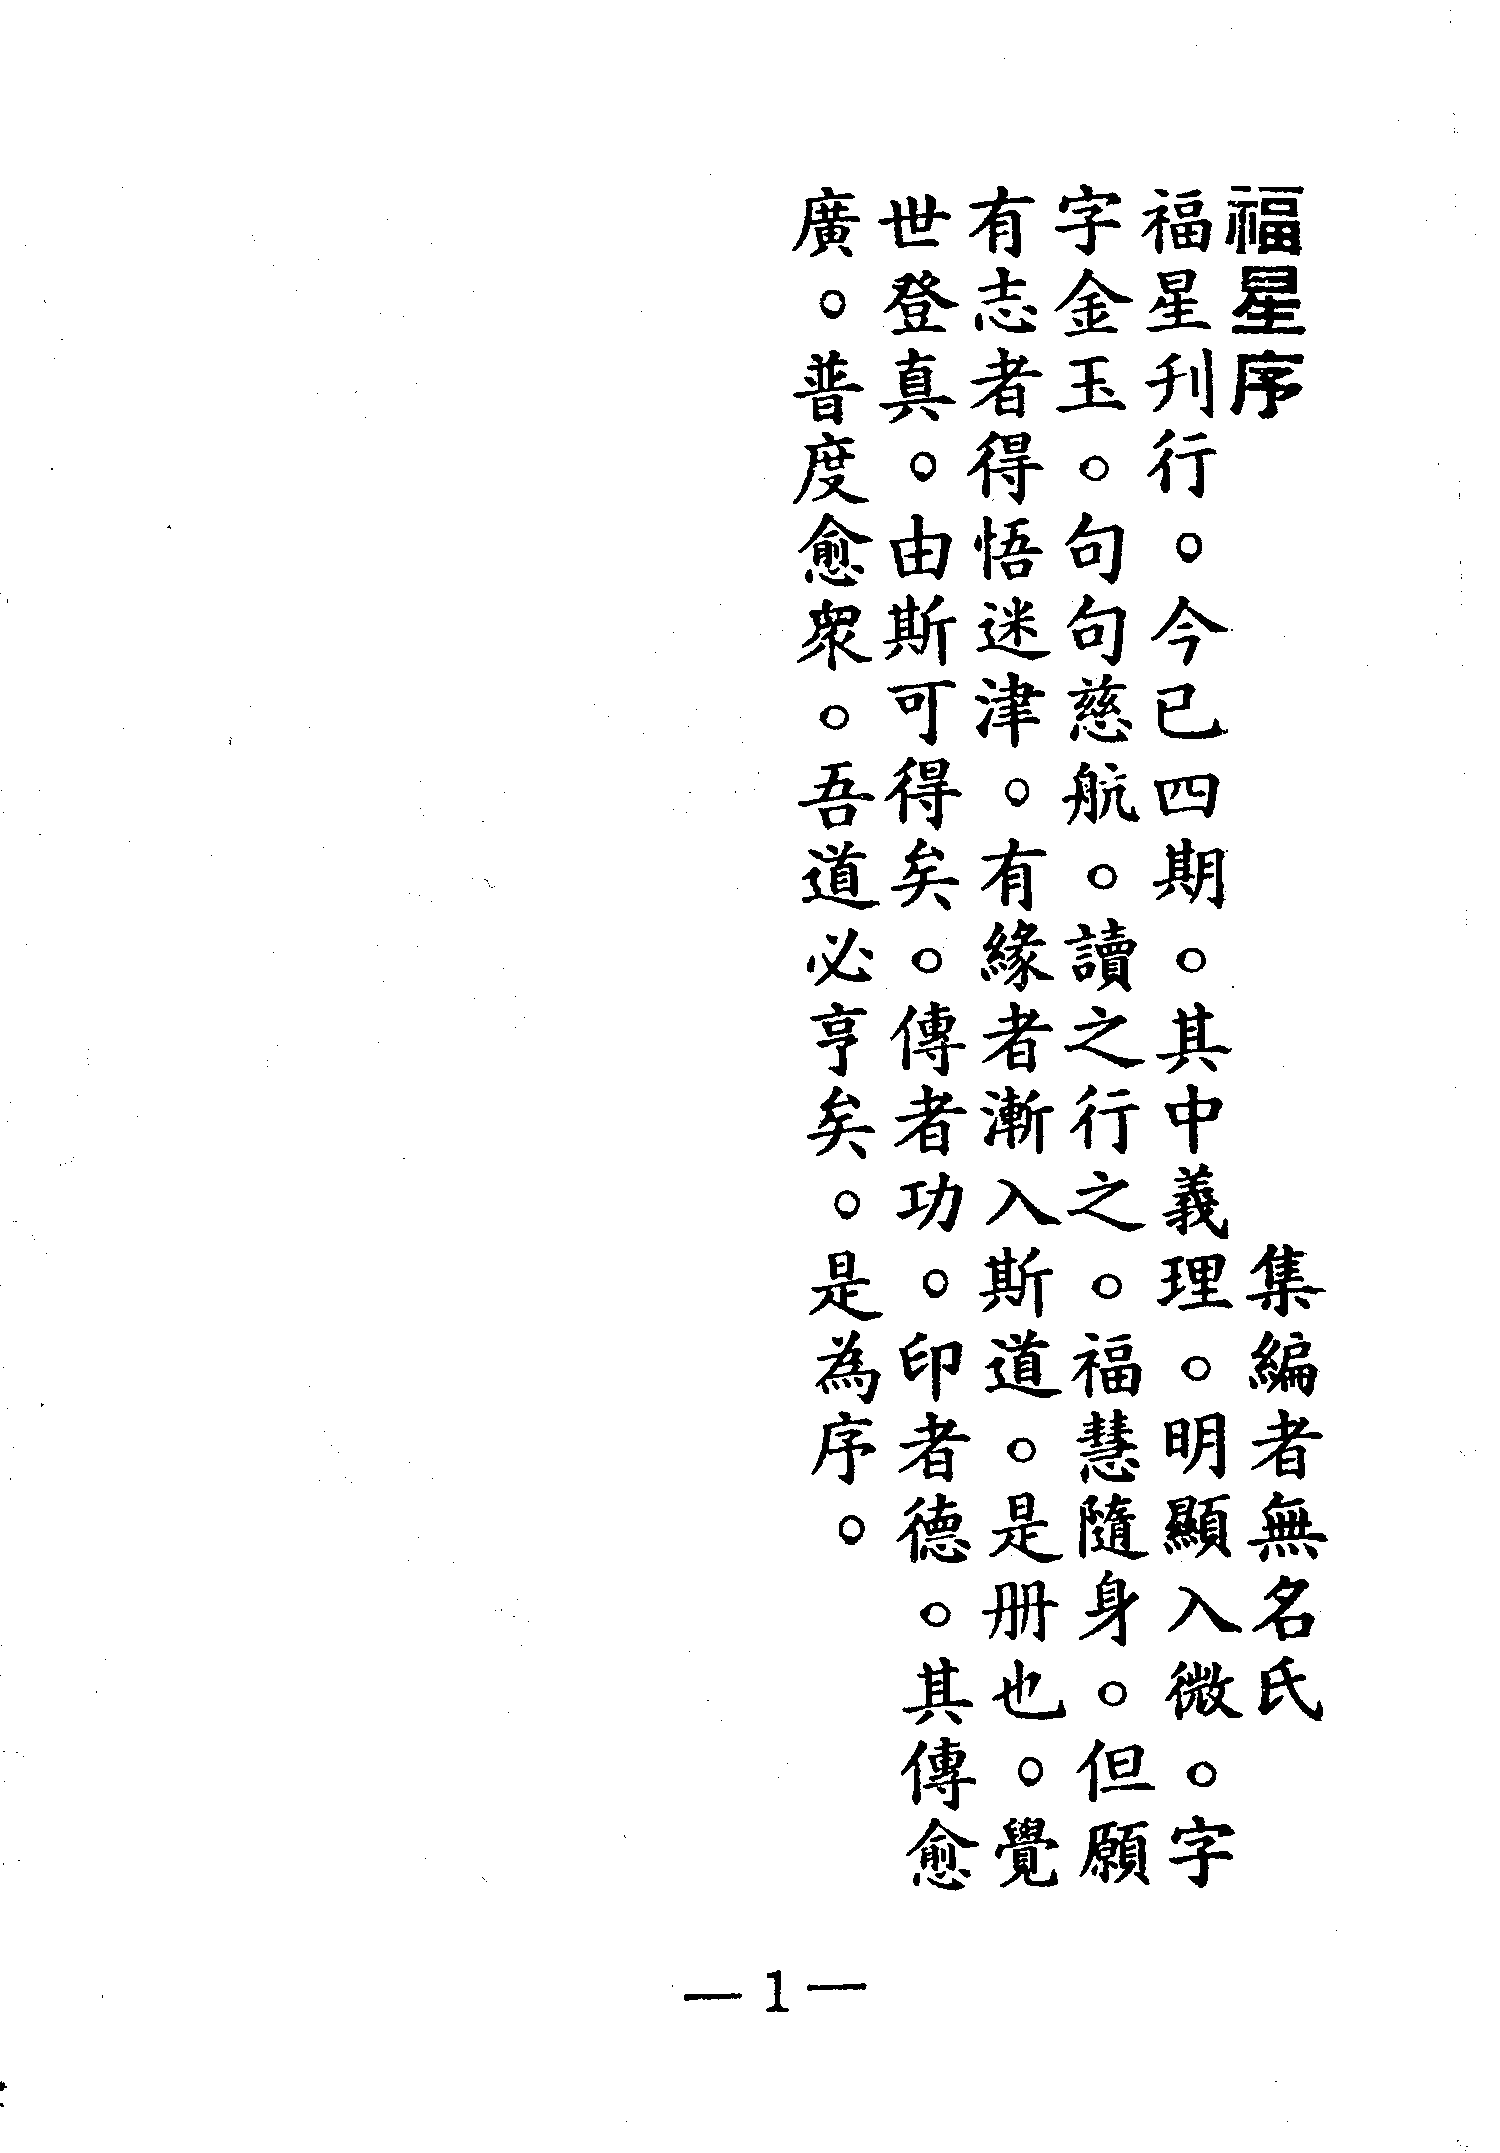 福星序
集編者無名氏
福星刋行。今已四期。其中義理。明顯入微。字
字金玉。句句慈航。讀之行之。福慧隨身。但願
有志者得悟迷津。有緣者漸入斯道。是册也。覺
世登真。由斯可得矣。傳者功。印者德。其傳愈
廣。普度愈眾。吾道必亨矣。是為序。
—1—